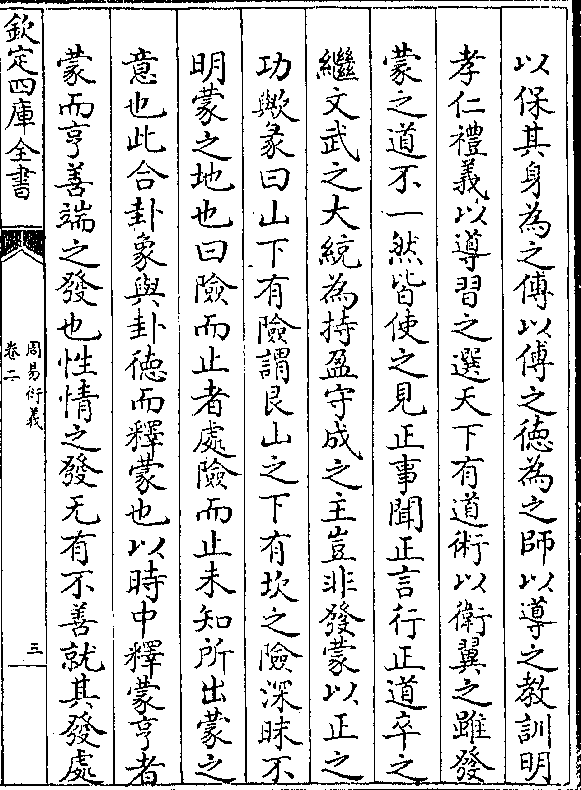 以保其身為之傅以傅之德為之師以導之教訓明
孝仁禮義以導習之選天下有道術以衛翼之雖發
蒙之道不一然皆使之見正事聞正言行正道卒之
繼文武之大統為持盈守成之主豈非發蒙以正之
功歟彖曰山下有險謂艮山之下有坎之險深昧不
明蒙之地也曰險而止者處險而止未知所出蒙之
意也此合卦象與卦德而釋蒙也以時中釋蒙亨者
蒙而亨善端之發也性情之發无有不善就其發處
欽定四庫全書
周易衍義
卷二
三